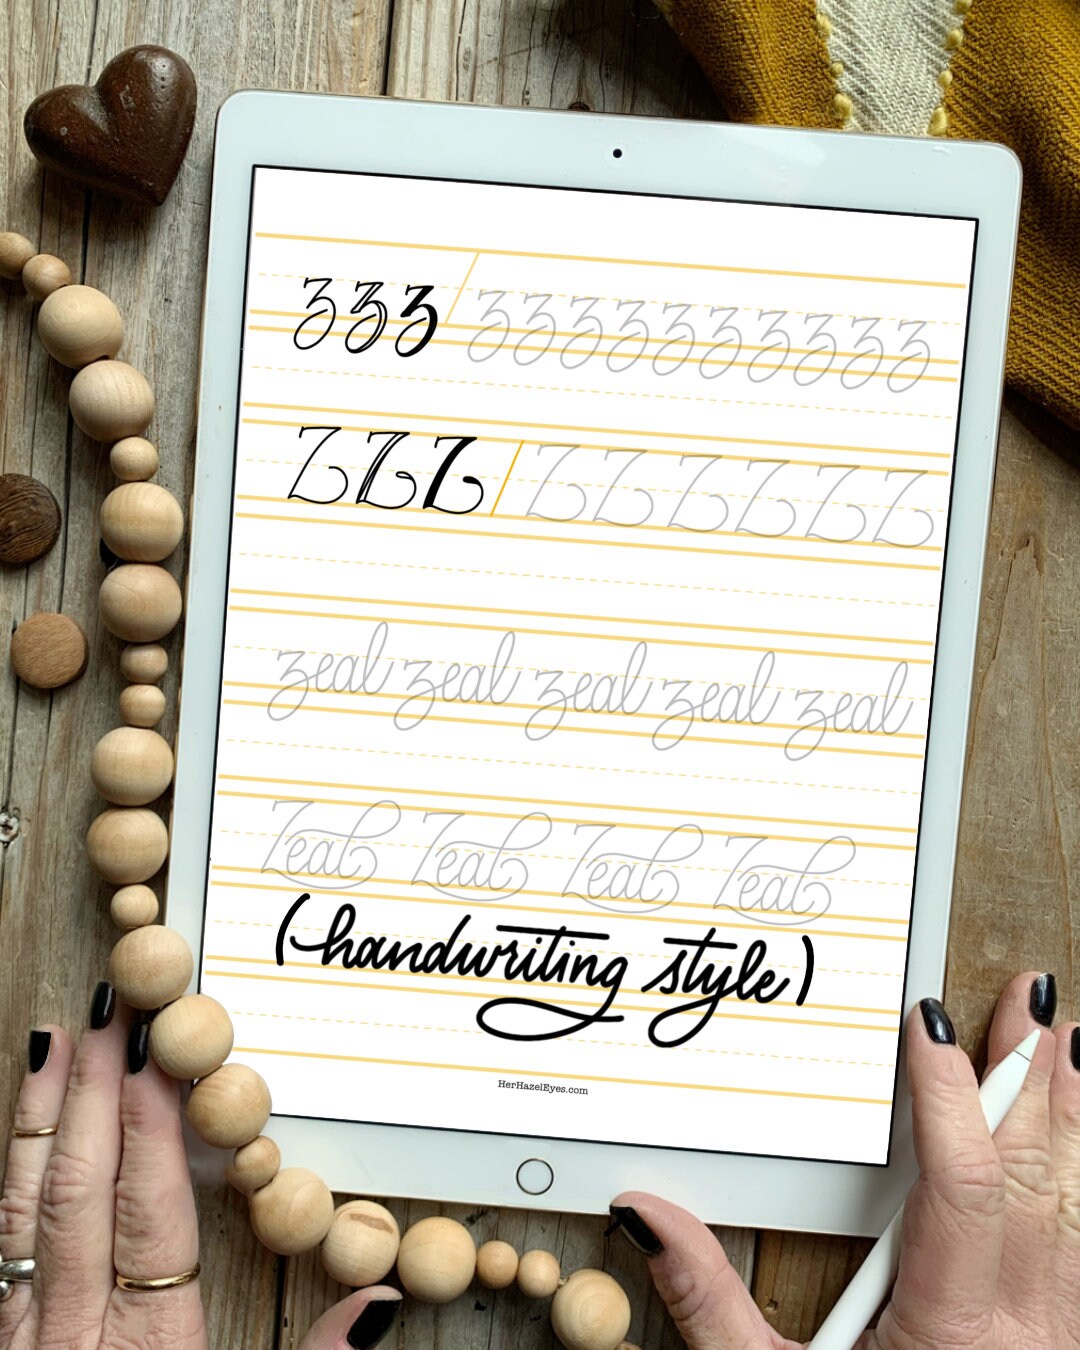 z z z z z z z z z z z z z
Z Z Z Z Z Z Z Z Z
zeal zeal zeal zeal zeal
Zeal Zeal Zeal Zeal
(handwriting style)
HerHazelEyes.com